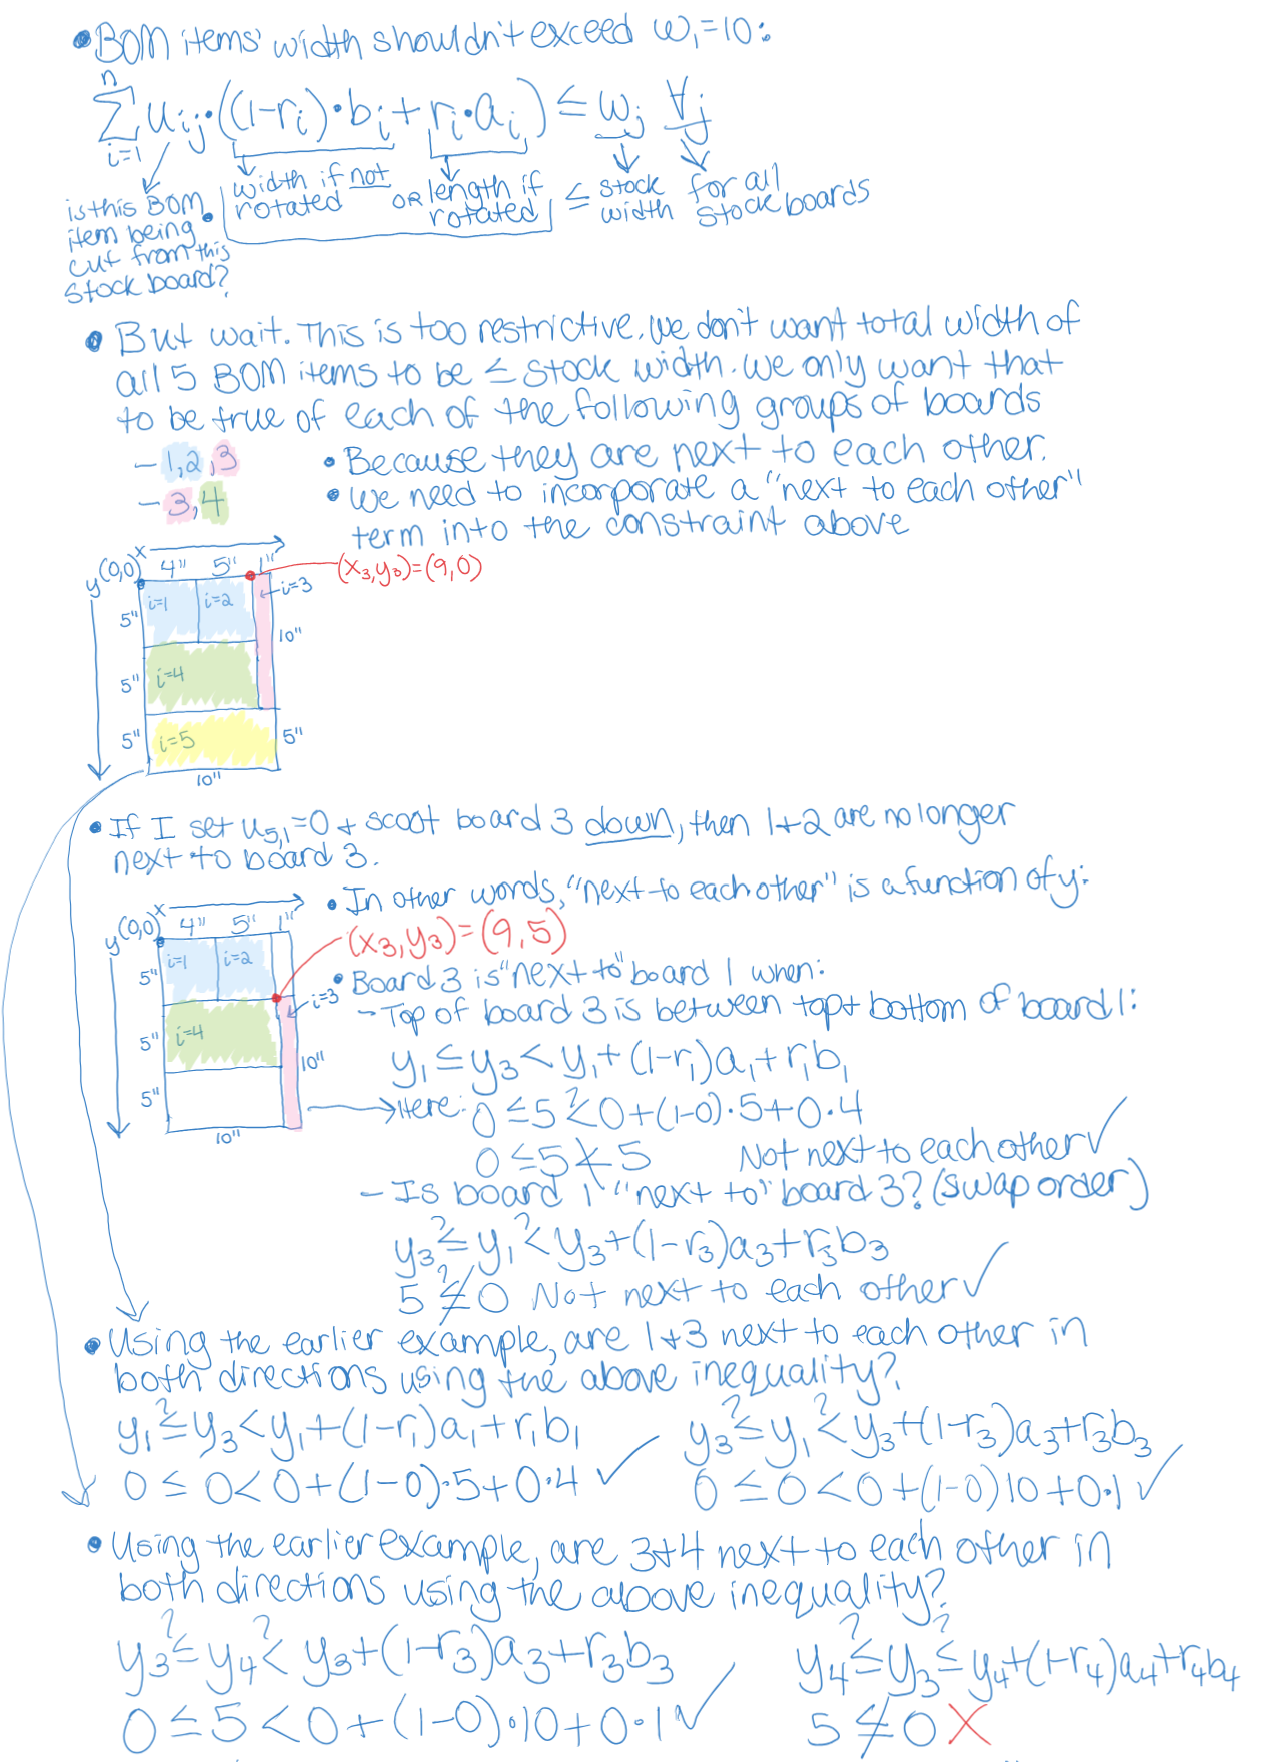 • BOM items' width shouldn't exceed w₁=10:
n
∑ uᵢⱼ·((1-rᵢ)·bᵢ + rᵢ·aᵢ) ≤ wⱼ ∀ⱼ
i=1
is this BOM item being cut from this stock board?
· (width if not rotated OR length if rotated) ≤ stock width for all stock boards
• But wait. This is too restrictive. We don't want total width of
all 5 BOM items to be ≤ stock width. We only want that
to be true of each of the following groups of boards
- 1,2,3
- 3,4
• Because they are next to each other.
• We need to incorporate a "next to each other"
term into the constraint above
x
y (0,0) 4" 5" 1"
(x₃,y₃)=(9,0)
5" i=1 i=2 i=3
10"
5" i=4
5" i=5 5"
10"
• If I set u₅,₁=0 + scoot board 3 down, then 1+2 are no longer
next to board 3.
• In other words, "next to each other" is a function of y:
x
y (0,0) 4" 5" 1"
(x₃,y₃)=(9,5)
5" i=1 i=2
i=3
5" i=4
10"
5"
10"
• Board 3 is "next to" board 1 when:
- Top of board 3 is between top + bottom of board 1:
y₁ ≤ y₃ < y₁+(1-r₁)a₁+r₁b₁
Here: 0 ≤ 5 <? 0+(1-0)·5+0·4
0 ≤ 5 ≮ 5 Not next to each other ✓
- Is board 1 "next to" board 3? (swap order)
y₃ ≤? y₁ <? y₃+(1-r₃)a₃+r₃b₃
5 ≰? 0 Not next to each other ✓
• Using the earlier example, are 1+3 next to each other in
both directions using the above inequality?
y₁ ≤? y₃ < y₁+(1-r₁)a₁+r₁b₁
0 ≤ 0 < 0+(1-0)·5+0·4 ✓
y₃ ≤? y₁ <? y₃+(1-r₃)a₃+r₃b₃
0 ≤ 0 < 0+(1-0)10+0·1 ✓
• Using the earlier example, are 3+4 next to each other in
both directions using the above inequality?
y₃ ≤? y₄ <? y₃+(1-r₃)a₃+r₃b₃
0 ≤ 5 < 0+(1-0)·10+0·1 ✓
y₄ ≤? y₃ ≤? y₄+(1-r₄)a₄+r₄b₄
5 ≰ 0 X